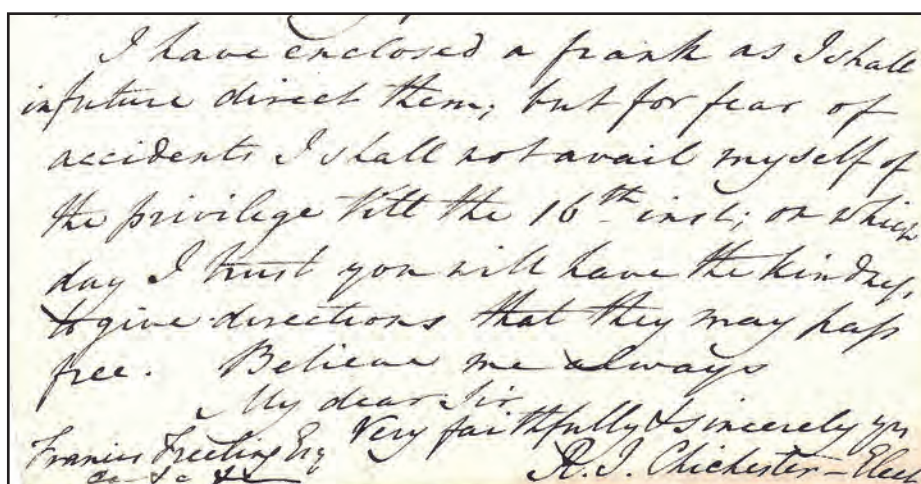 I have enclosed a frank as I shall
in future direct them; but for fear of
accidents I shall not avail myself of
the privilege till the 16th inst; on which
day I trust you will have the kindness,
to give directions that they may pass
free. Believe me always
My dear Sir
Very faithfully & sincerely yrs
Francis Freeling Esq
&c &c &c
R. J. Chichester - Elect